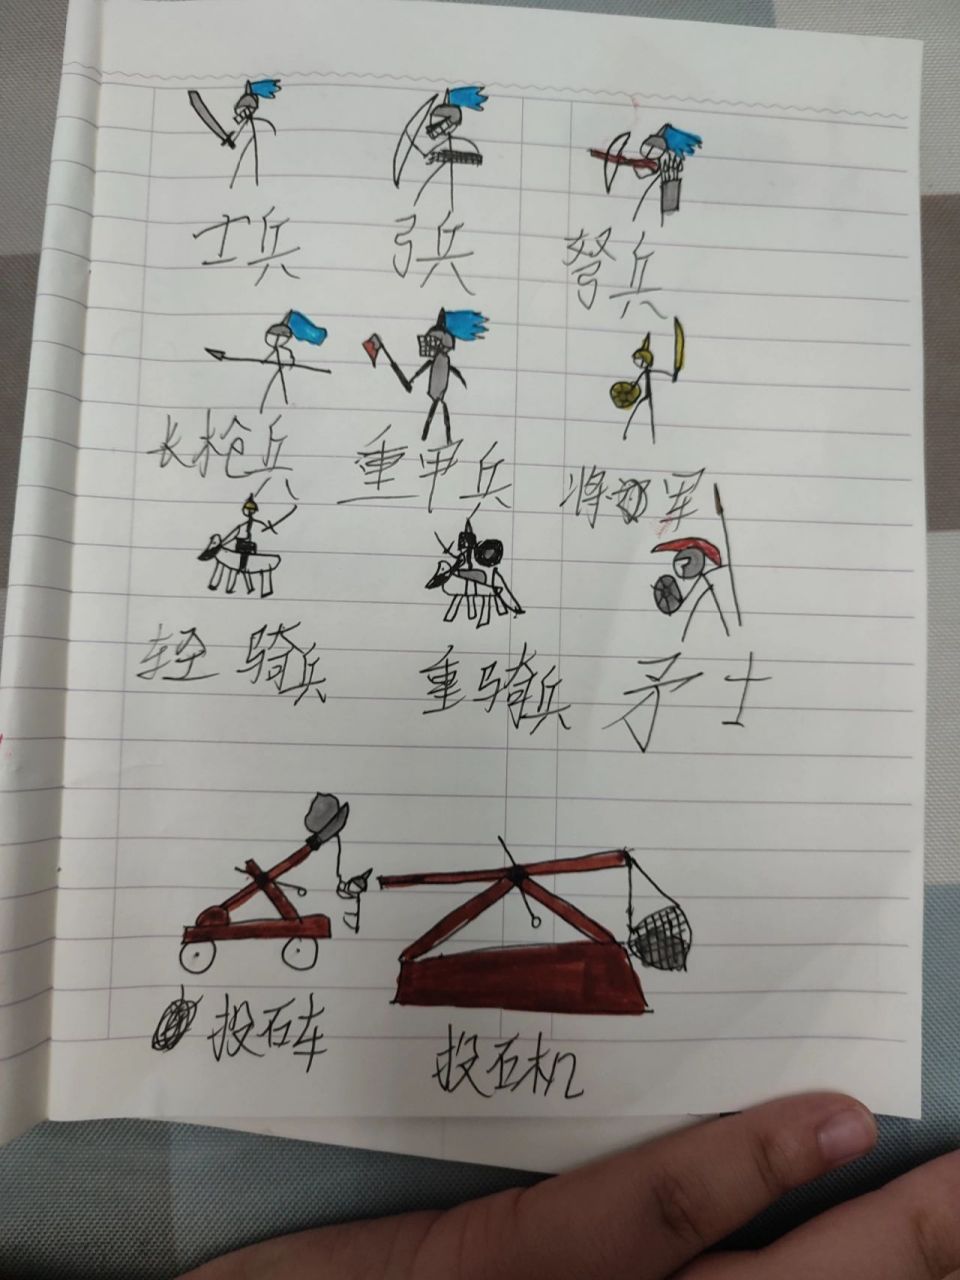 士兵 弓兵 弩兵
长枪兵 重甲兵 将军
轻骑兵 重骑兵 矛士
投石车 投石机